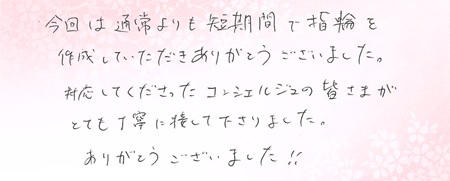 今回は通常よりも短期間で指輪を
作成していただきありがとうございました。
対応してくださった コンシェルジュの皆さまが
とても丁寧に接して下さりました。
ありがとうございました!!